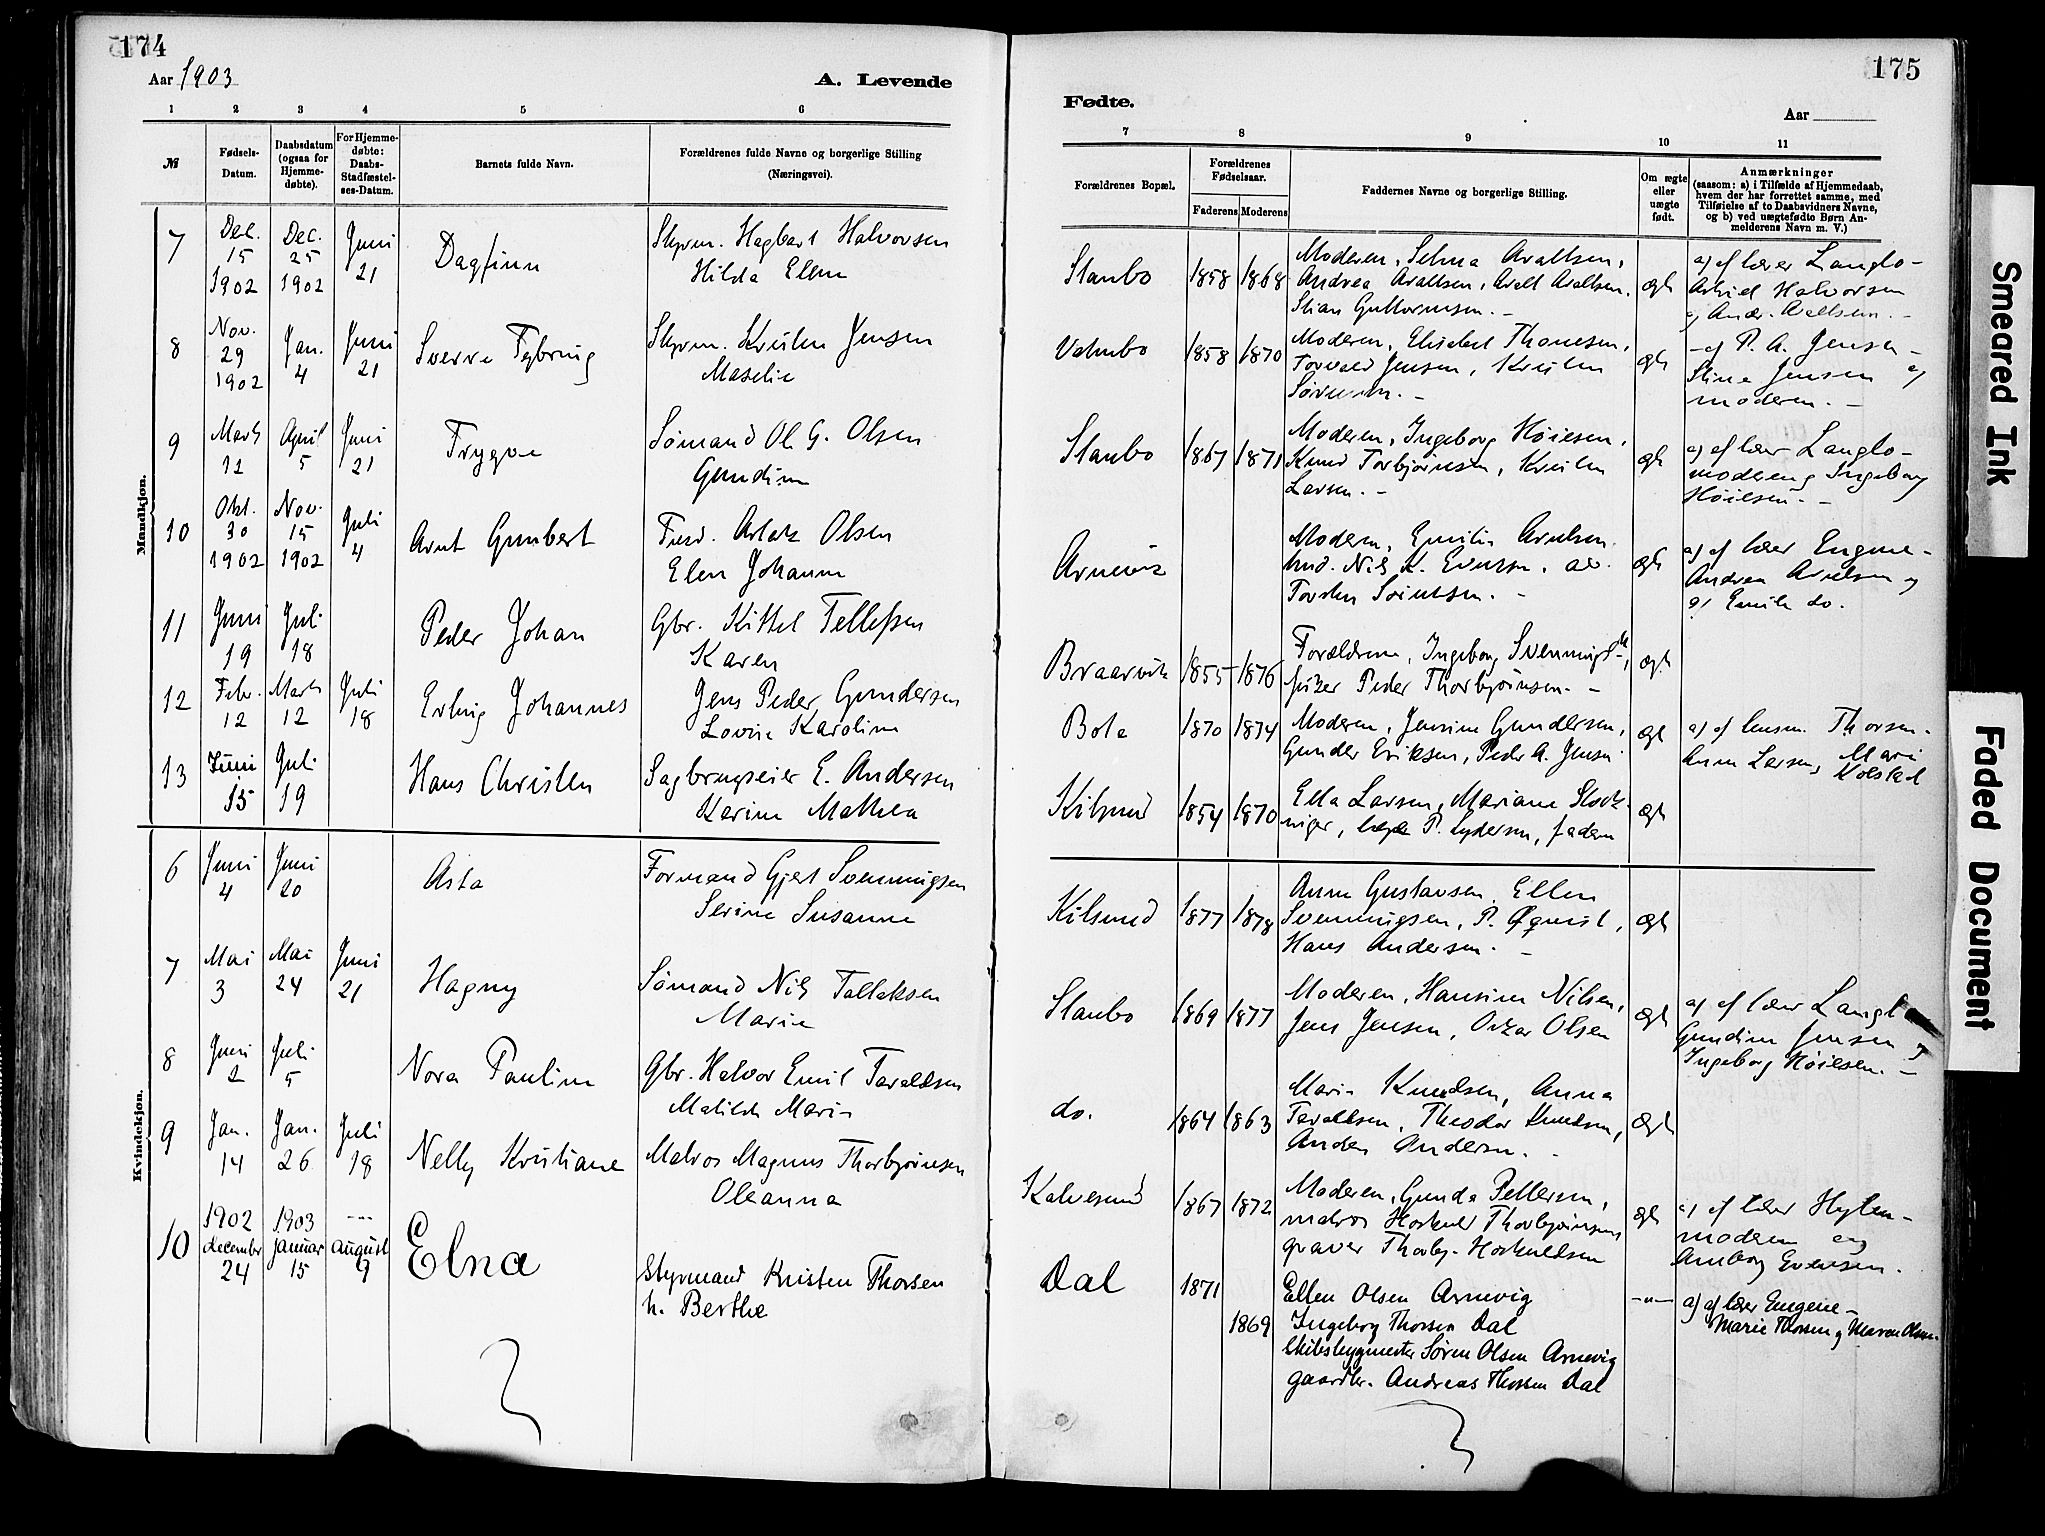 174
Aar 1903
A. Levende
1 2 3 4 5 6
№
Fødsels-
Datum.
Daabsdatum
(ogsaa for
Hjemme-
døbte).
For Hjemme-
døbte:
Daabs-
Stadfæstel-
ses-Datum.
Barnets fulde Navn.
Forældrenes fulde Navne og borgerlige Stilling
(Næringsvei).
Mandkjøn.
7
Dec.
15
1902
Dec.
25
1902
Juni
21
Dagfinn
Styrm. Hagbart Halvorsen
Hilda Elene
8
Nov.
29
1902
Jan.
4
Juni
21
Sverre Fybring
Styrm. Kristen Jensen
Maselie
9
Marts
11
April
5
Juni
21
Trygve
Sømand Ol. G. Olsen
Gundine
10
Okt.
30
1902
Nov.
15
1902
Juli
4
Arnt Gunbert
Aslak Olsen
Elen Johanne
11
Juni
19
Juli
18
Peder Johan
Gbr. Kittel Tellefsen
Karen
12
Febr.
12
Marts
12
Juli
18
Erling Johannes
Jens Peder Gundersen
Lovise Karoline
13
Juni
15
Juli
19
Hans Christen
Sagbrugseier E. Andersen
Karine Mathea
Kvindekjøn.
6
Juni
4
Juni
20
Asta
Formand Gjert Svenningsen
Serine Susanne
7
Mai
3
Mai
24
Juni
21
Hagny
Sømand Nils Tallaksen
Marie
8
Juni
2
Juli
5
Nora Pauline
Gbr. Halvor Emil Taraldsen
Matilde Marie
9
Jan.
14
Jan.
26
Juli
18
Nelly Kristiane
Matros Magnus Thorbjørnsen
Oleanna
10
1902
december
24
1903
januar
15
---
august
9
Elna
Styrmand Kristen Thorsen
h. Berthe
175
Fødte.
Aar
7 8 9 10 11
Forældrenes Bopæl.
Forældrenes
Fødselsaar.
Faderens Moderens
Faddernes Navne og borgerlige Stilling.
Om ægte
eller
uægte
født.
Anmærkninger
(saasom: a) i Tilfælde af Hjemmedaab,
hvem der har forrettet samme, med
Tilføielse af to Daabsvidners Navne,
og b) ved uægtefødte Børn An-
melderens Navn m. V.)
Staubo 1858 1868
Moderen, Selma Avaltsen,
Andrea Avaltsen, Avalt Avaltsen,
Stian Guttormsen. -
ægte
a) af lærer Langlo-
Astrid Halvorsen
1858 1870
Moderen, Elisabet Thomesen,
Torvald Jensen, Kristen
ægte
- af P. A. Jensen -
Stine Jensen og
moderen. -
Staubo 1867 1871
Moderen, Ingeborg Høiesen,
Knud Torbjørnsen, Kristen
Larsen. -
ægte
a) af lærer Langlo-
moderen og Ingeborg
Høiesen. -
Arnevik
Moderen, Emilie Arntsen
ungk. Nils K. Evensen,
ægte
a) af lærer Eugene-
Andrea Arntsen og
Emilie do.
Braarvik 1855 1876
Forældrene, Ingeborg Svennings-,
Peder Thorbjørnsen. -
ægte
Bota 1870 1874
Moderen, Jensine Gundersen,
Gunder Eriksen, Peder A. Jensen
ægte
Thorsen-
Anne Larsen, Marie
Kolstad
Kilsund 1854 1870
Ella Larsen, Mariane
P. Lydersen, faderen
ægte
Kilsund 1877 1878
Anne Gustavsen, Ellen
Svenningsen, P. Øquist,
Hans Andersen. -
ægte
Staubo 1869 1877
Moderen, Hansine Nilsen,
Jens Jensen, Oskar Olsen
ægte
a) af lærer Langlo
Gundine Jensen og
Ingeborg Høiesen. -
do. 1864 1863
Marie Knudsen, Anna
Taraldsen, Theodor Knudsen,
Anders Andersen. -
ægte
Kalvesund 1867 1872
Moderen, Gunda Pettersen,
matros Hoskuld Thorbjørnsen
graver Thorbj. Hoskuldsen
ægte
a) af lærer Hylen-
moderen og
Amborg Evensen.
Dal 1871
1869
Ellen Olsen Arnevig
Ingeborg Thorsen Dal
Skibsbygmester Søren Olsen Arnevig
gaardbr. Andreas Thorsen Dal
-"-
a) af lærer Eugene-
Marie Thorsen og Maren Olsen
Smeared Ink
Faded Document